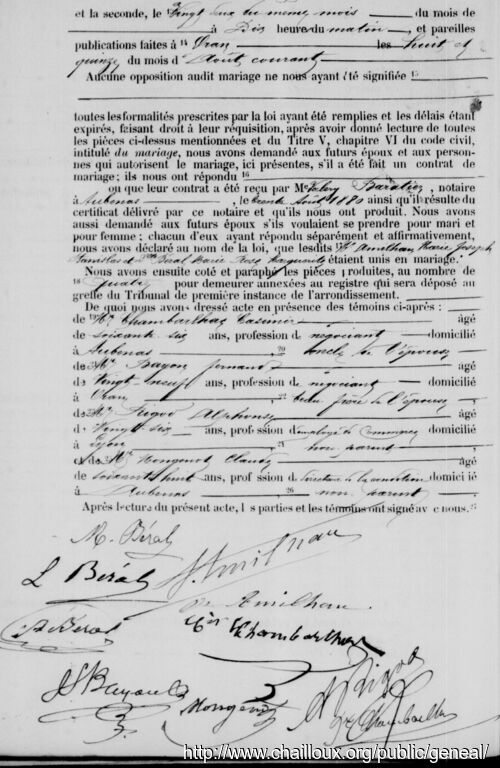 et la seconde, le vingt deux du même mois du mois de
à Dix heure du matin, et pareilles
publications faites à 14 Oran les huit et
quinze du mois d'Août courant
Aucune opposition audit mariage ne nous ayant été signifiée 15
toutes les formalités prescrites par la loi ayant été remplies et les délais étant
expirés, faisant droit à leur réquisition, après avoir donné lecture de toutes
les pièces ci-dessus mentionnées et du Titre V, chapitre VI du code civil,
intitulé du mariage, nous avons demandé aux futurs époux et aux person-
nes qui autorisent le mariage, ici présentes, s'il a été fait un contrat de
mariage; ils nous ont répondu 16
ou que leur contrat a été reçu par Me Baratier, notaire
à Aubenas, le trente Août 1880 ainsi qu'il résulte du
certificat délivré par ce notaire et qu'ils nous ont produit. Nous avons
aussi demandé aux futurs époux s'ils voulaient se prendre pour mari et
pour femme; chacun d'eux ayant répondu séparément et affirmativement,
nous avons déclaré au nom de la loi, que lesdits Mr Amilhau Marie Joseph
Stanislas et Dlle Béral Marie Rose Marguerite étaient unis en mariage.
Nous avons ensuite coté et paraphé les pièces produites, au nombre de
18 quatre pour demeurer annexées au registre qui sera déposé au
greffe du Tribunal de première instance de l'arrondissement.
De quoi nous avons dressé acte en présence des témoins ci-après :
de 19 Mr Chambarlhac Casimir âgé
de soixante six ans, profession de négociant domicilié
à Aubenas 20 oncle de l'épouse
de Mr Bayon Fernand âgé
de vingt neuf ans, profession de négociant domicilié
à Oran 22 beau frère de l'épouse
de Mr Alphonse âgé
de vingt six ans, profession d'employé de commerce domicilié
à Lyon 24 non parent
et de Mr Claude âgé
de soixante huit ans, profession de directeur de la condition domicilié
à Aubenas 26 non parent
Après lecture du présent acte, les parties et les témoins ont signé avec nous. 27
M. Béral
L Béral
Amilhau
Amilhau
A Béral
Cir Chambarlhac
http://www.chailloux.org/public/geneal/